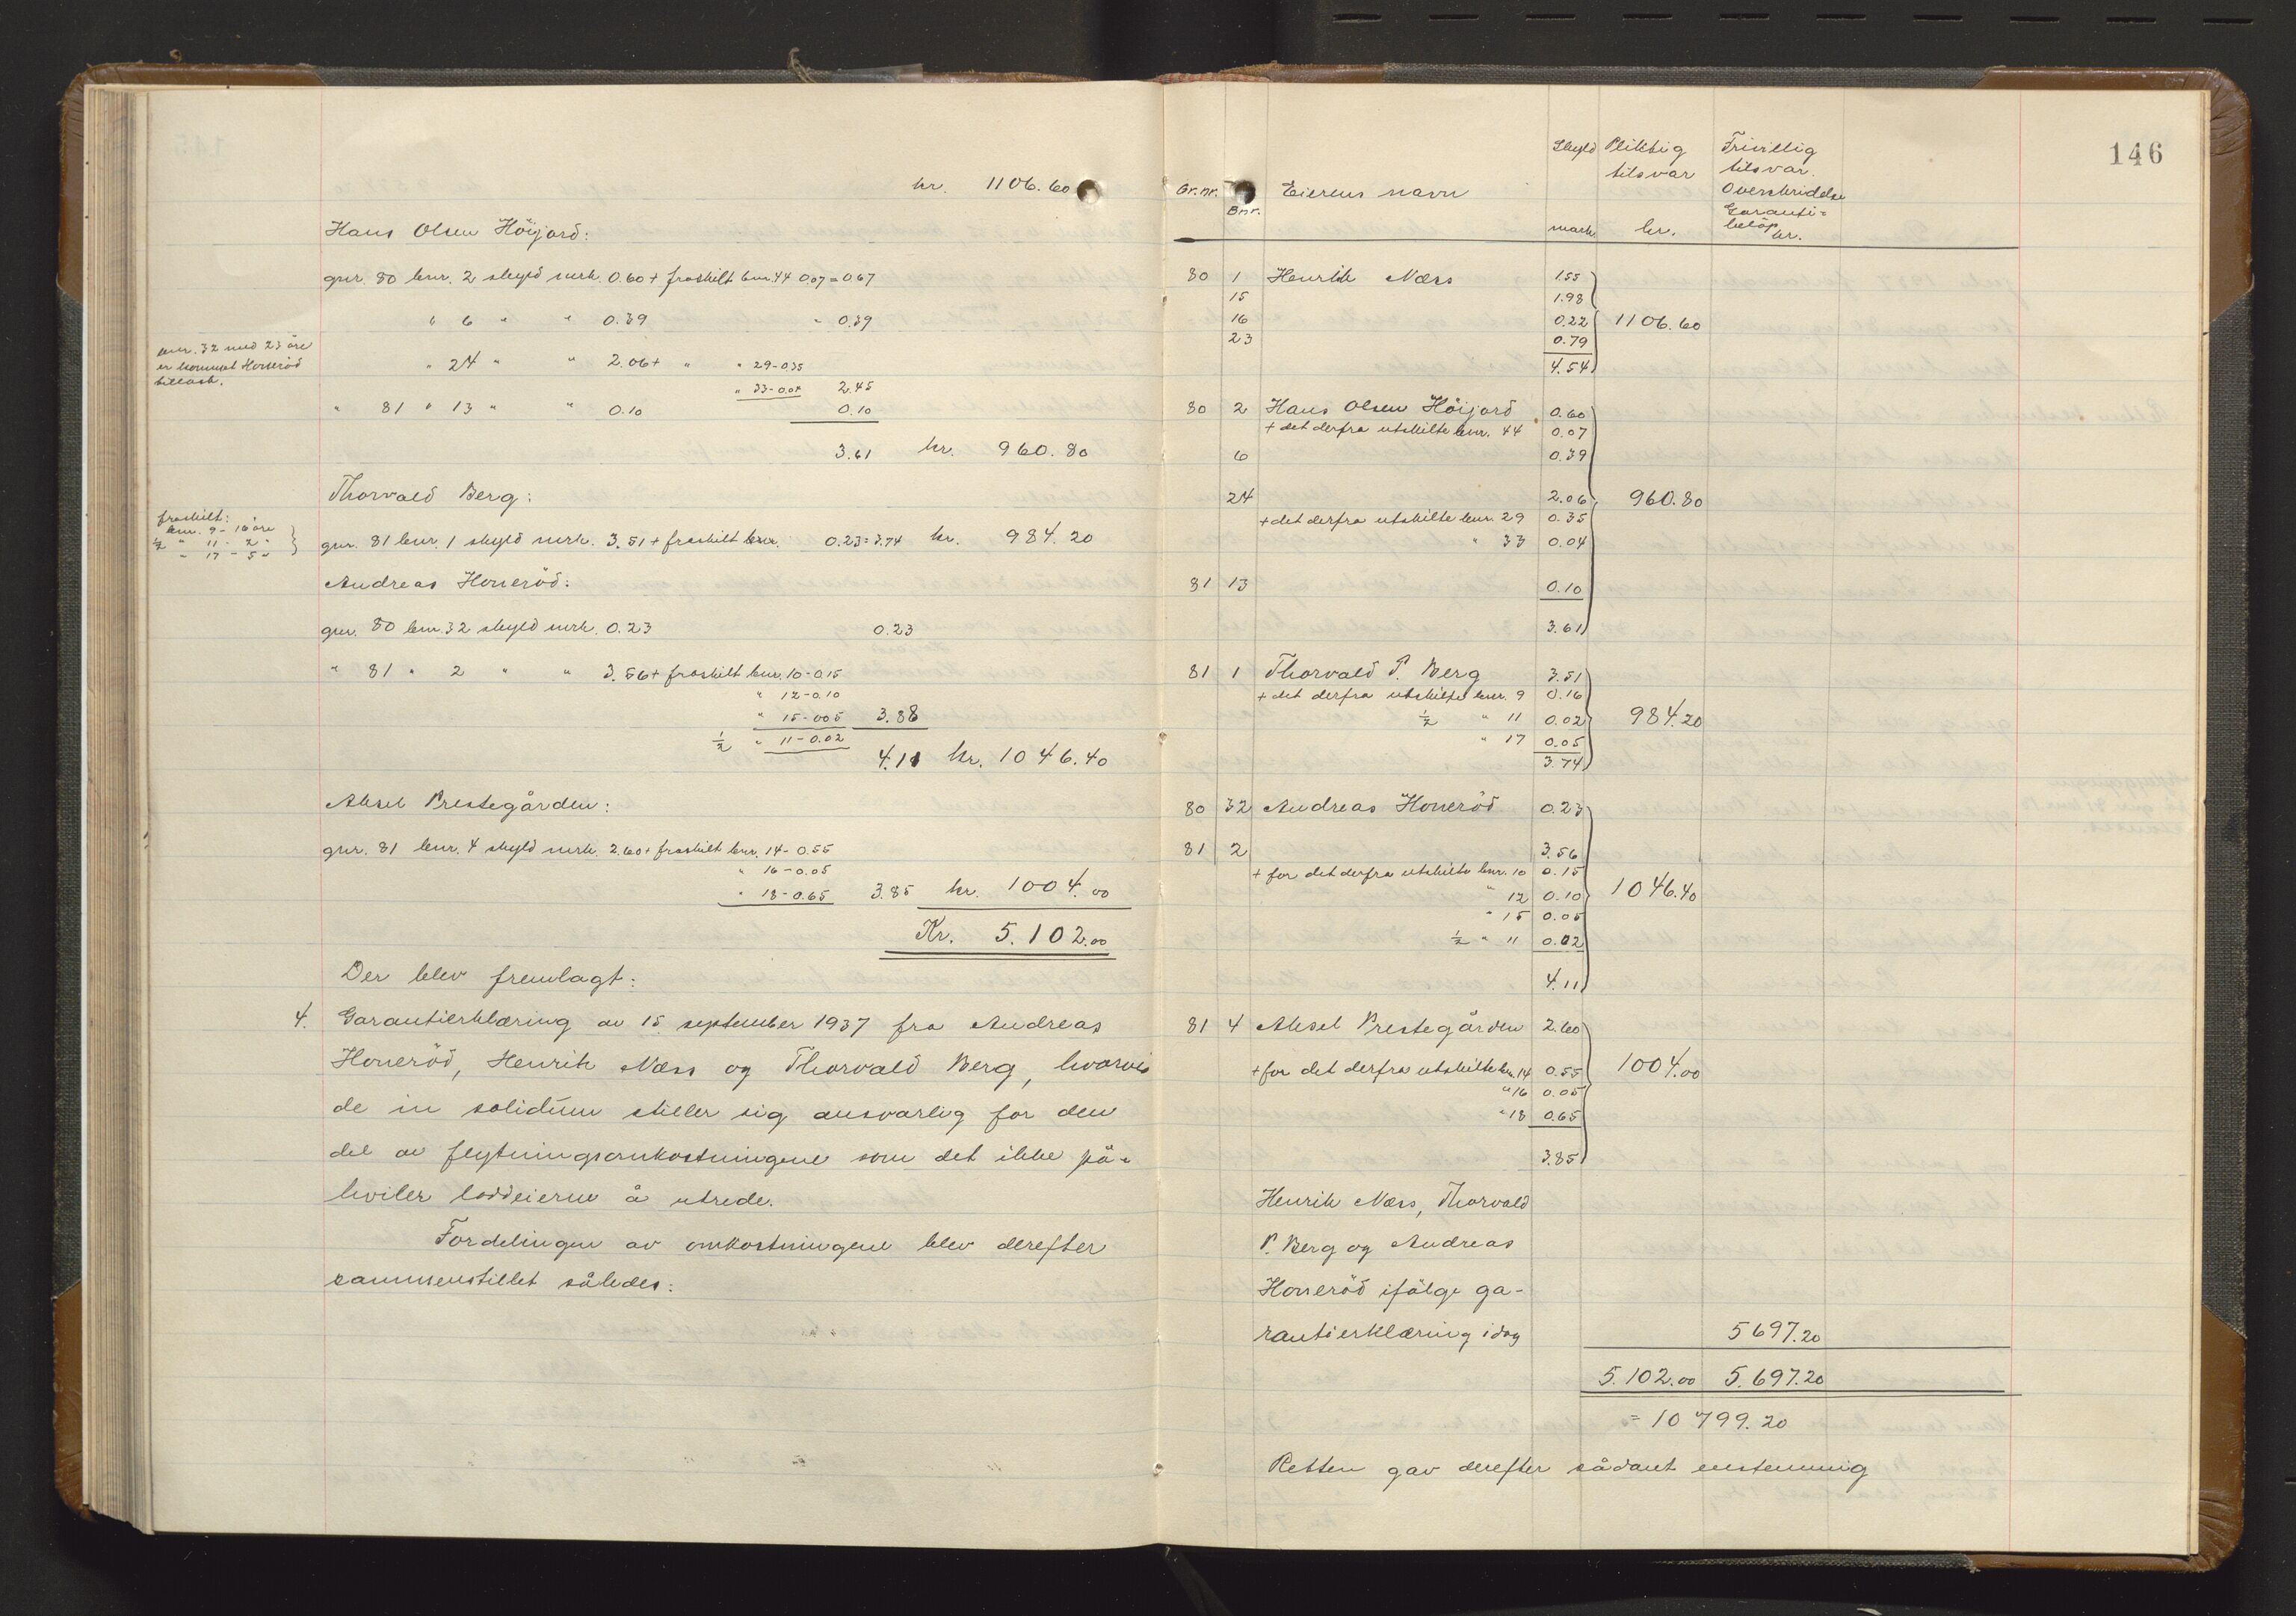 kr. 1106.60
Hans Olsen Höijord:
gnr. 80 bnr. 2 skyld mrk. 0.60 + fraskilt bnr. 44 0.07 = 0.67
" 6 " " 0.39 " 0.39
bnr. 32 med 23 øre
er kommet Honeröd
tillast.
" 24 " " 2.06 + " " 29 - 0.35
" 33 - 0.04 2.45
" 81 " 13 " " 0.10 0.10
3.61 kr. 960.80
Thorvald Berg:
fraskilt:
bnr. 9 - 16 øre
½ " 11 - 2 "
" 17 - 5 "
gnr. 81 bnr. 1 skyld mrk. 3.51 + fraskilt bnr. 0.23 = 3.74 kr. 984.20
Andreas Honeröd:
gnr. 80 bnr. 32 skyld mrk. 0.23 0.23
" 81 " 2 " " 3.56 + fraskilt bnr. 10 - 0.15
" 12 - 0.10
" 15 - 0.05 3.88
½ " 11 - 0.02
4.11 kr. 1046.40
Aksel Prestegården:
gnr. 81 bnr. 4 skyld mrk. 2.60 + fraskilt bnr. 14 - 0.55
" 16 - 0.05
" 18 - 0.65 3.85 kr. 1004.00
Kr. 5.102.00
Der blev fremlagt:
4. Garantierklæring av 15 september 1937 fra Andreas
Honeröd, Henrik Næss og Thorvald Berg, hvorved
de in solidum stiller sig ansvarlig for den
del av flytningsomkostningene som det ikke på-
hviler loddeierne å utrede.
Fordelingen av omkostningene blev derefter
sammenstillet således:
146
Gr.nr. Bnr. Eierens navn Skyld mark. Pliktig tilsvar kr. Frivillig tilsvar. Overskridelse Garanti= beløp kr.
80 1 Henrik Næss 1.55
15 1.98
16 0.22 1106.60
23 0.79
4.54
80 2 Hans Olsen Höijord 0.60
+ det derfra utskilte bnr. 44 0.07
6 0.39
24 2.06 960.80
+ det derfra utskilte bnr. 29 0.35
" 33 0.04
81 13 0.10
3.61
81 1 Thorvald P. Berg 3.51
+ det derfra utskilte bnr. 9 0.16
½ " 11 0.02 984.20
" 17 0.05
3.74
80 32 Andreas Honeröd 0.23
81 2 3.56
+ for det derfra utskilte bnr. 10 0.15
" 12 0.10 1046.40
" 15 0.05
½ " 11 0.02
4.11
81 4 Aksel Prestegården 2.60
+ for det derfra utskilte bnr. 14 0.55 1004.00
" 16 0.05
" 18 0.65
3.85
Henrik Næss, Thorvald
P. Berg og Andreas
Honeröd ifölge ga-
rantierklæring idag 5697.20
5.102.00 5.697.20
= 10 799.20
Retten gav derefter sådant enstemmig